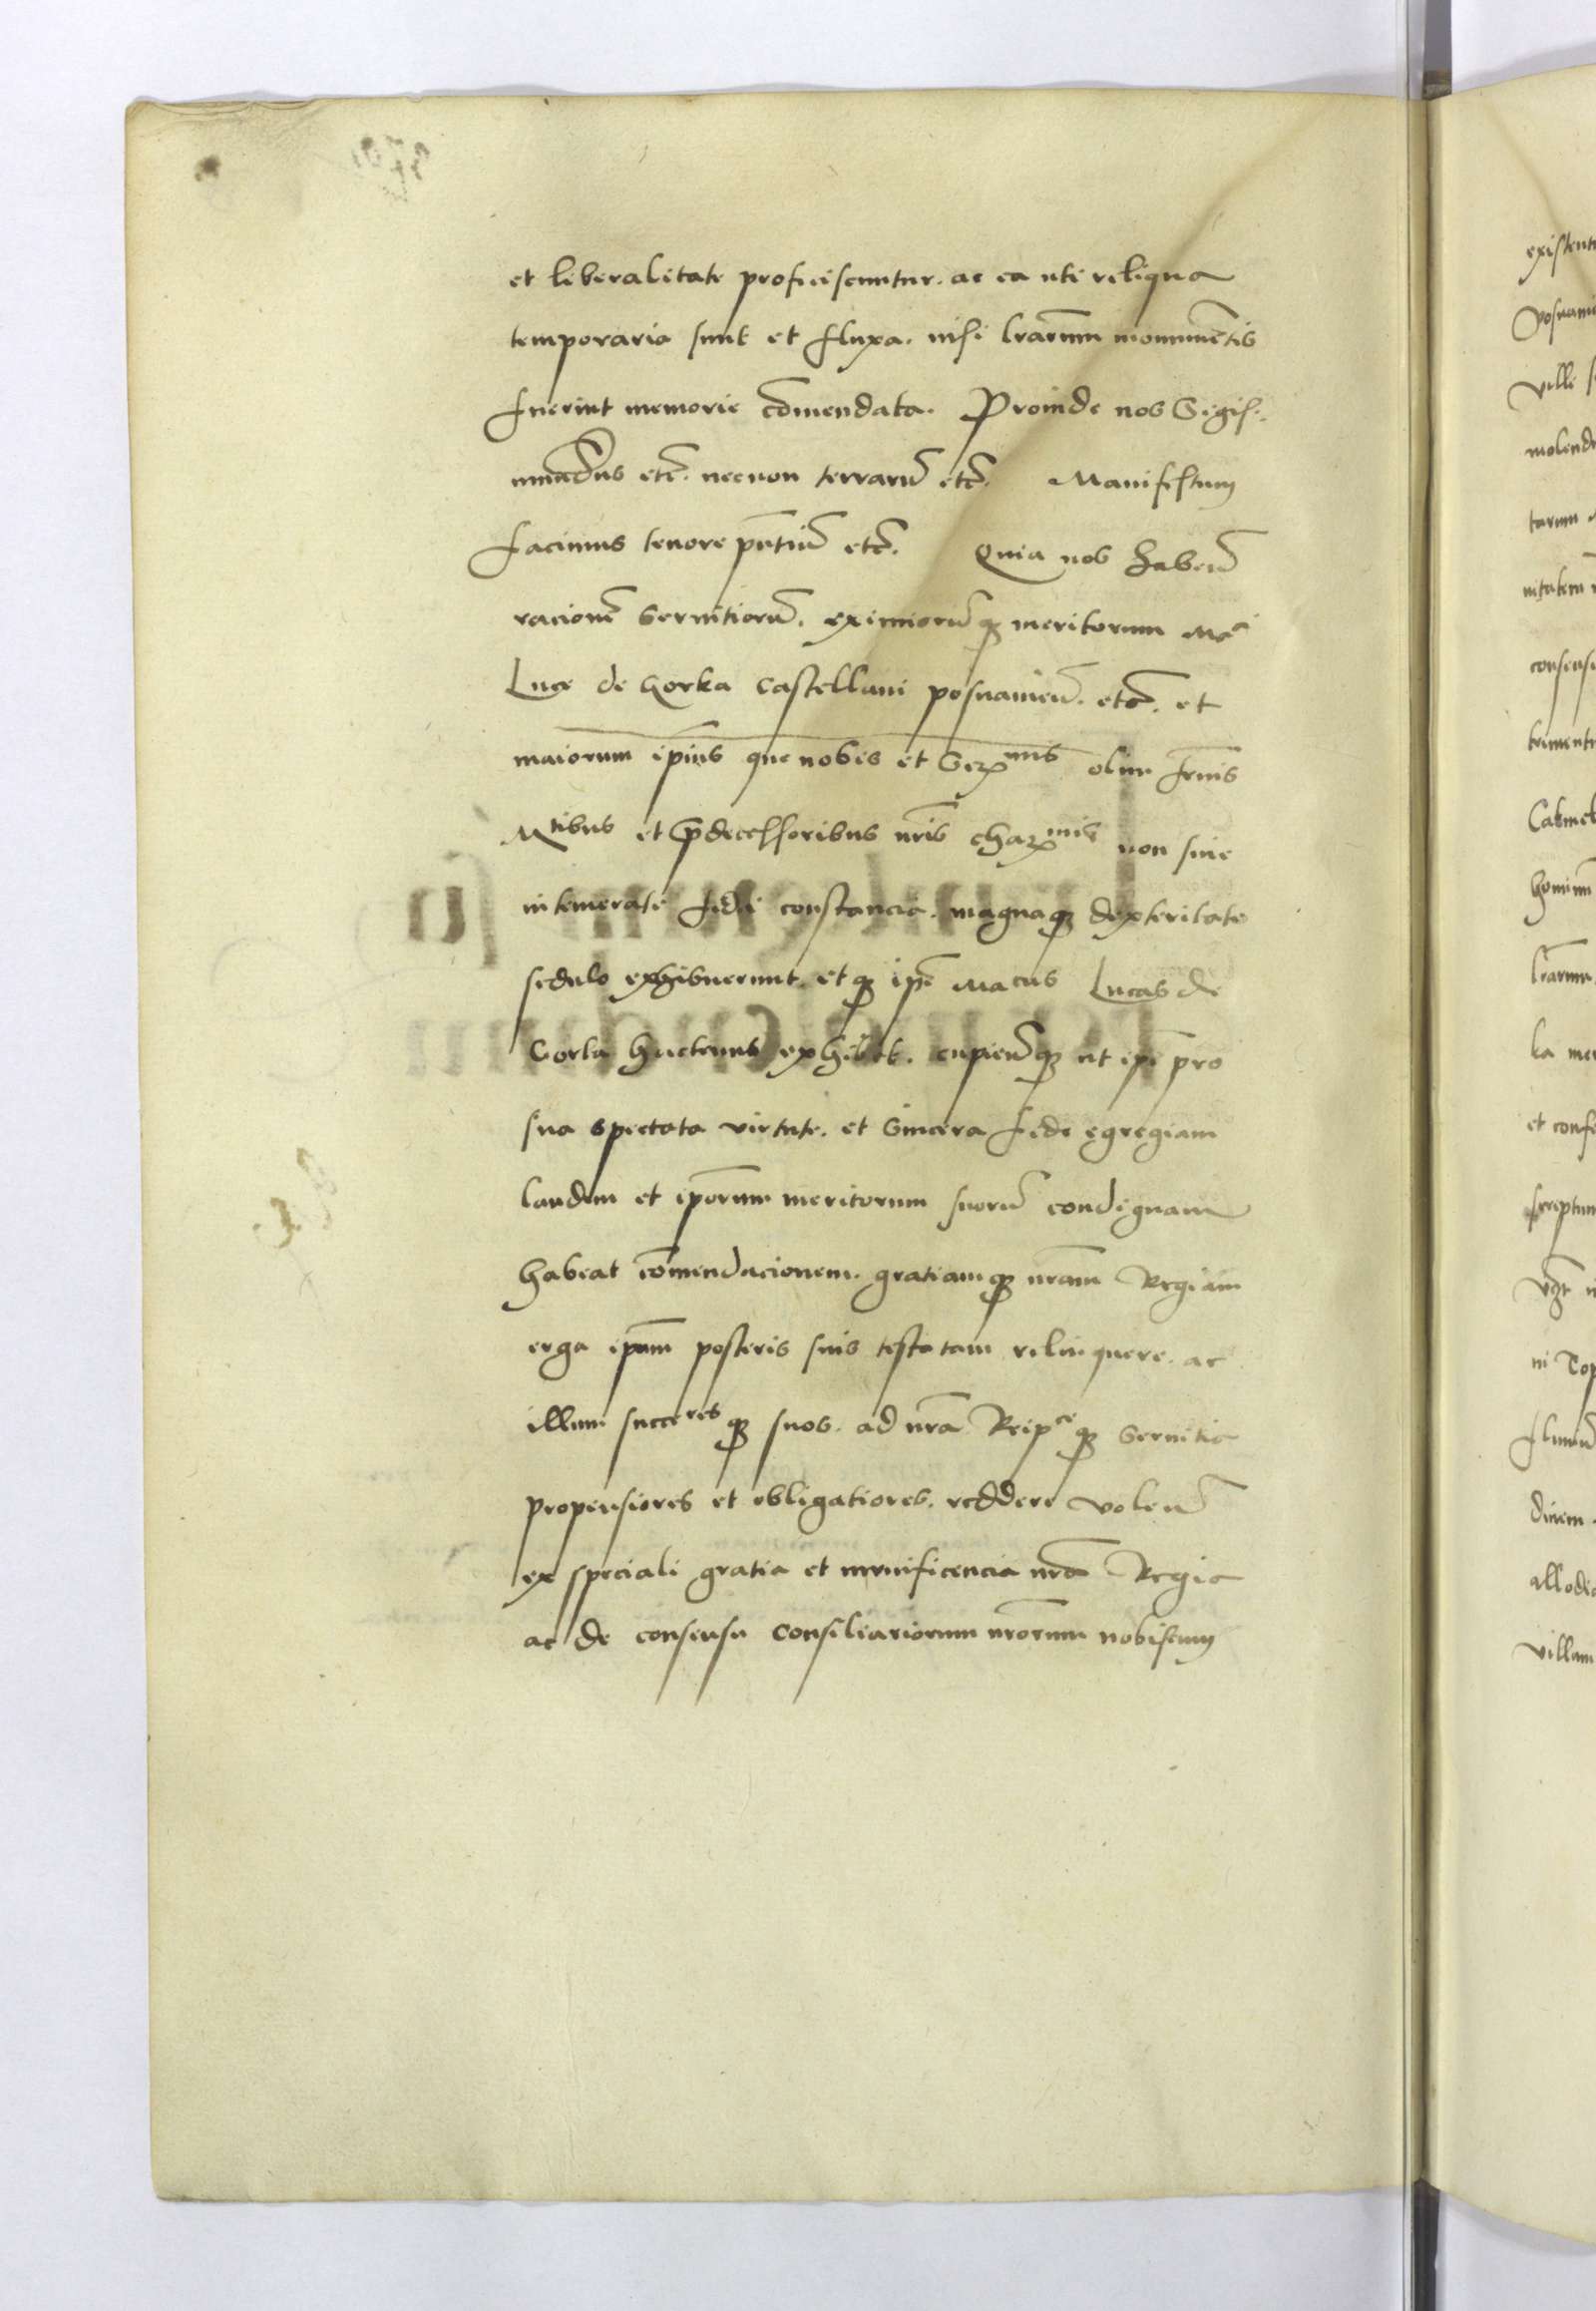 et liberalitate proficiscuntur. ac ea uti reliqua
temporaria sunt et fluxa. nisi lrarum monumetis
fuerint memorie comendata. Proinde nos Sigis-
mudus etc. necnon terraru etc. Manifestum
facimus tenore pntiu etc. Quia nos haben
racione servitioru. eximioruq meritorum Mci
Luce de Gorka Castellani posnanien. etc. et
maiorum ipius que nobis et Serx mis olim frnis
Mtibus et pdecessoribus nris charx mis non sine
intemerate fidei constancia. magnaq dexteritate
sedulo exhibuerunt. et q ipe Macus Lucas de
Gorka hactenus exhibet. cupienq ut ipe pro
sua spectata virtute. et sincera fide egregiam
laudem et iporum meritorum suoru condignam
habeat comendacionem. gratiamq nram Regiam
erga ipum posteris suis testatam relinquere. ac
illum succe res q suos. ad nra Reip ce q servitia
propensiores et obligatiores. reddere volen
ex speciali gratia et munificencia nra Regia
ac de consensu Consiliariorum nrorum nobiscum
existent
posnani
villi
molend
tarum
nitatem
consensu
homin
lrarum
ka me
et conf
scriptum
ni Top
flumi
dinem
allodi
villam